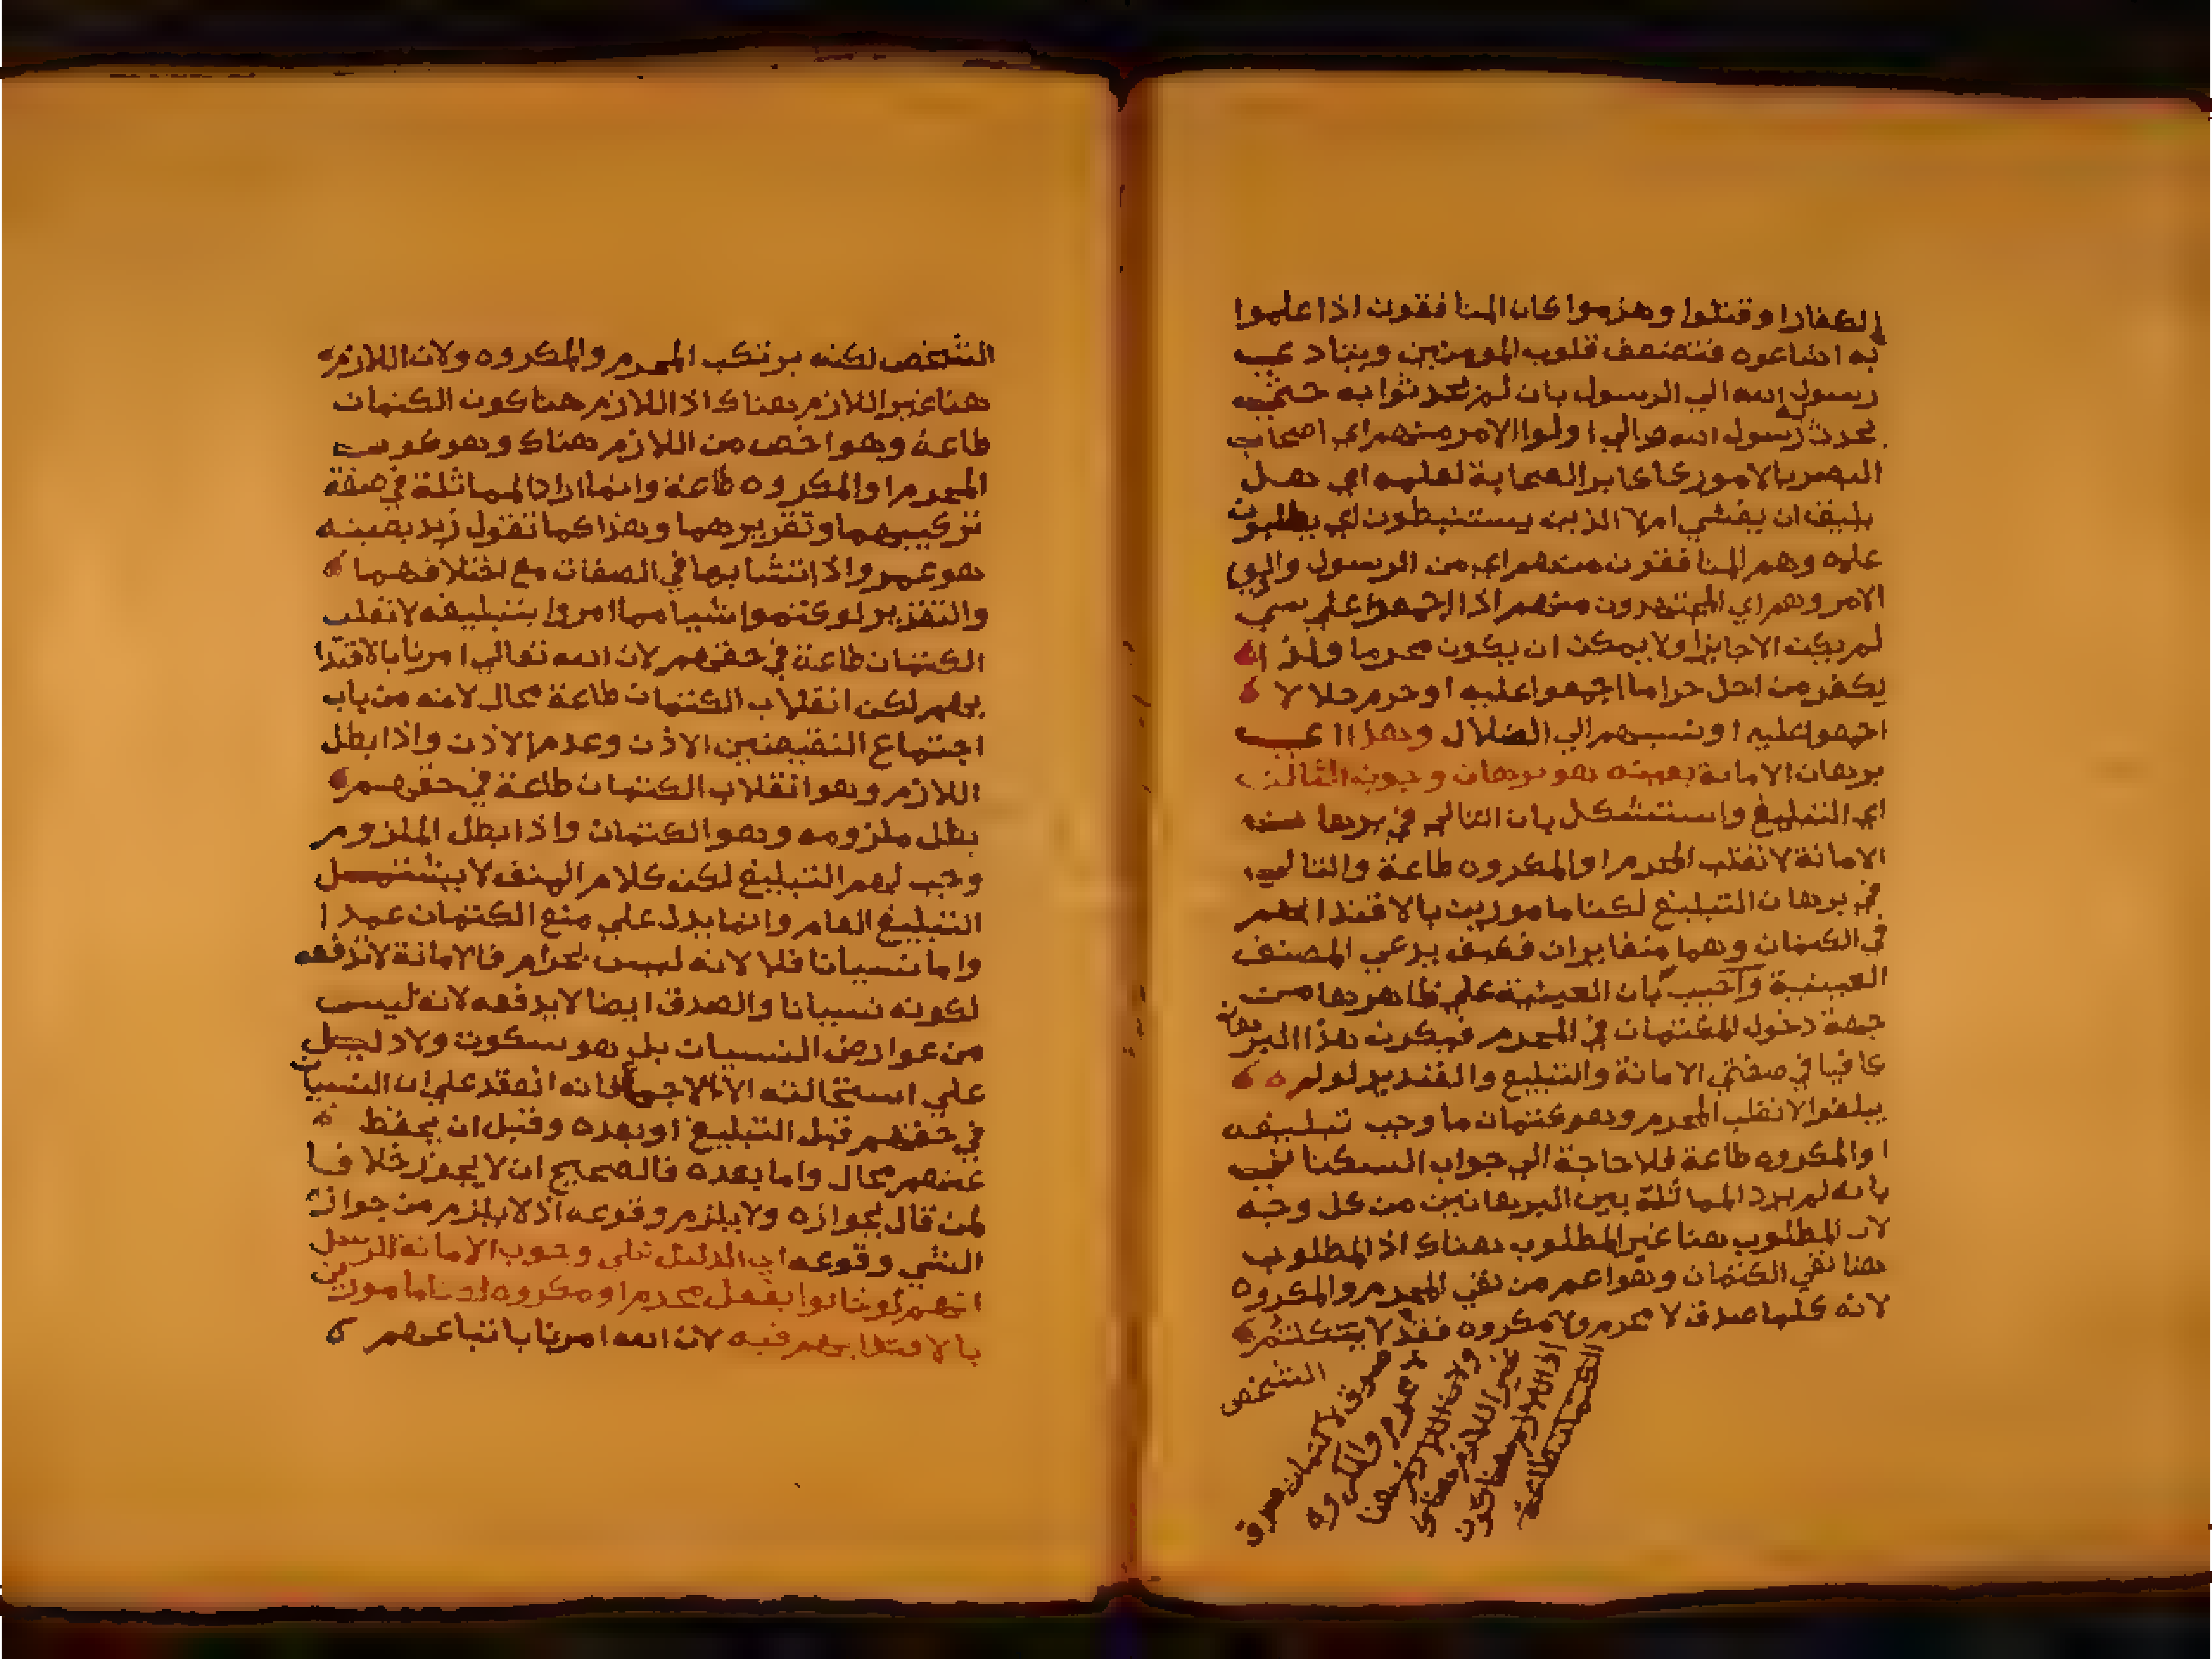 الكفارا وقتلوا وهزموا كان المنافقون اذا علموا
به اشاعوه فتضعف قلوب المومنين ويتاد
رسول الله الي الرسول بان لم يحدثوا به حتي
يحدث رسول الله والي اولوا الامر منهم اي اصحاب
البصر بالامور كاكابر الصحابة لعلمه اي هل
يليق ان يفشي ام لا الذين يستنبطون اي يطلبون
علمه وهم المنافقون منهم اي من الرسول واولي
الامر وهم اي المجتهدون منهم اذا اجمعوا علي شي
لم يكن الاجايزا ولا يمكن ان يكون محرما ولذا
يكفر من احل حراما اجمعوا عليه او حرم حلالا
اجمعوا عليه او نسبهم الي الضلال وهذا
برهان الامانة بعينه هو برهان وجوب الثالث
اي التبليغ واستشكل بان التالي في برهان
الامانة لانقلب المحرم او المكروه طاعة والتالي
في برهان التبليغ لكنا مامورين بالاقتدا بهم
في الكتمان وهما متغايران فكيف يدعي المصنف
العينية وآجيب بان العينية علي ظاهرها من
جهة دخول الكتمان في المحرم فيكون هذا البرهان
كافيا في صفتي الامانة والتبليغ والتقدير لو لم
يبلغوا لانقلب المحرم وهو كتمان ما وجب تبليغه
او المكروه طاعة فلا حاجة الي جواب السكتاني
بانه لم يرد المماثلة بين البرهانين من كل وجه
لان المطلوب هنا غير المطلوب هناك اذ المطلوب
هنا نفي الكتمان وهو اعم من نفي المحرم والمكروه
لانه كلما صدق لا محرم ولا مكروه فقد لا يتكتم
الشخص
صدق لا كتمان صدق
لا محرم ولا مكروه
ولان اللازم هنا
غير اللازم هناك
اذ اللازم هنا كون
الكتمان طاعة
الشخص لكنه يرتكب المحرم والمكروه ولان اللازم
هنا غير اللازم هناك اذ اللازم هنا كون الكتمان
طاعة وهو اخص من اللازم هناك وهو كون
المحرم او المكروه طاعة وانما اراد المماثلة في صفة
تركيبهما وتقريرهما وهذا كما تقول زيد بعينه
هو عمرو اذا تشابها في الصفات مع اختلافهما
والتقدير لو كتموا شيا مما امروا بتبليغه لانقلب
الكتمان طاعة في حقهم لان الله تعالي امرنا بالاقتدا
بهم لكن انقلاب الكتمان طاعة محال لانه من باب
اجتماع النقيضين الاذن وعدم الاذن واذا بطل
اللازم وهو انقلاب الكتمان طاعة في حقهم
بطل ملزومه وهو الكتمان واذا بطل الملزوم
وجب لهم التبليغ لكن كلام المصنف لا يشمل
التبليغ العام وانما يدل علي منع الكتمان عمدا
واما نسيانا فلا لانه ليس بحرام فالامانة لا تدفعه
لكونه نسيانا والصدق ايضا لا يدفعه لانه ليس
من عوارض النسيان بل هو سكوت ولا دليل
علي استحالته الا الاجماع فانه انعقد علي ان النسيان
في حقهم قبل التبليغ او بعده وقبل ان يحفظ
عنهم محال واما بعده فالصحيح ان لا يجوز خلافا
لمن قال بجوازه ولا يلزم وقوعه اذ لا يلزم من جواز
الشي وقوعه اي الدليل علي وجوب الامانة للرسل
انهم لو خانوا بفعل محرم او مكروه لكنا مامورين
بالاقتدا بهم فيه لان الله امرنا باتباعهم